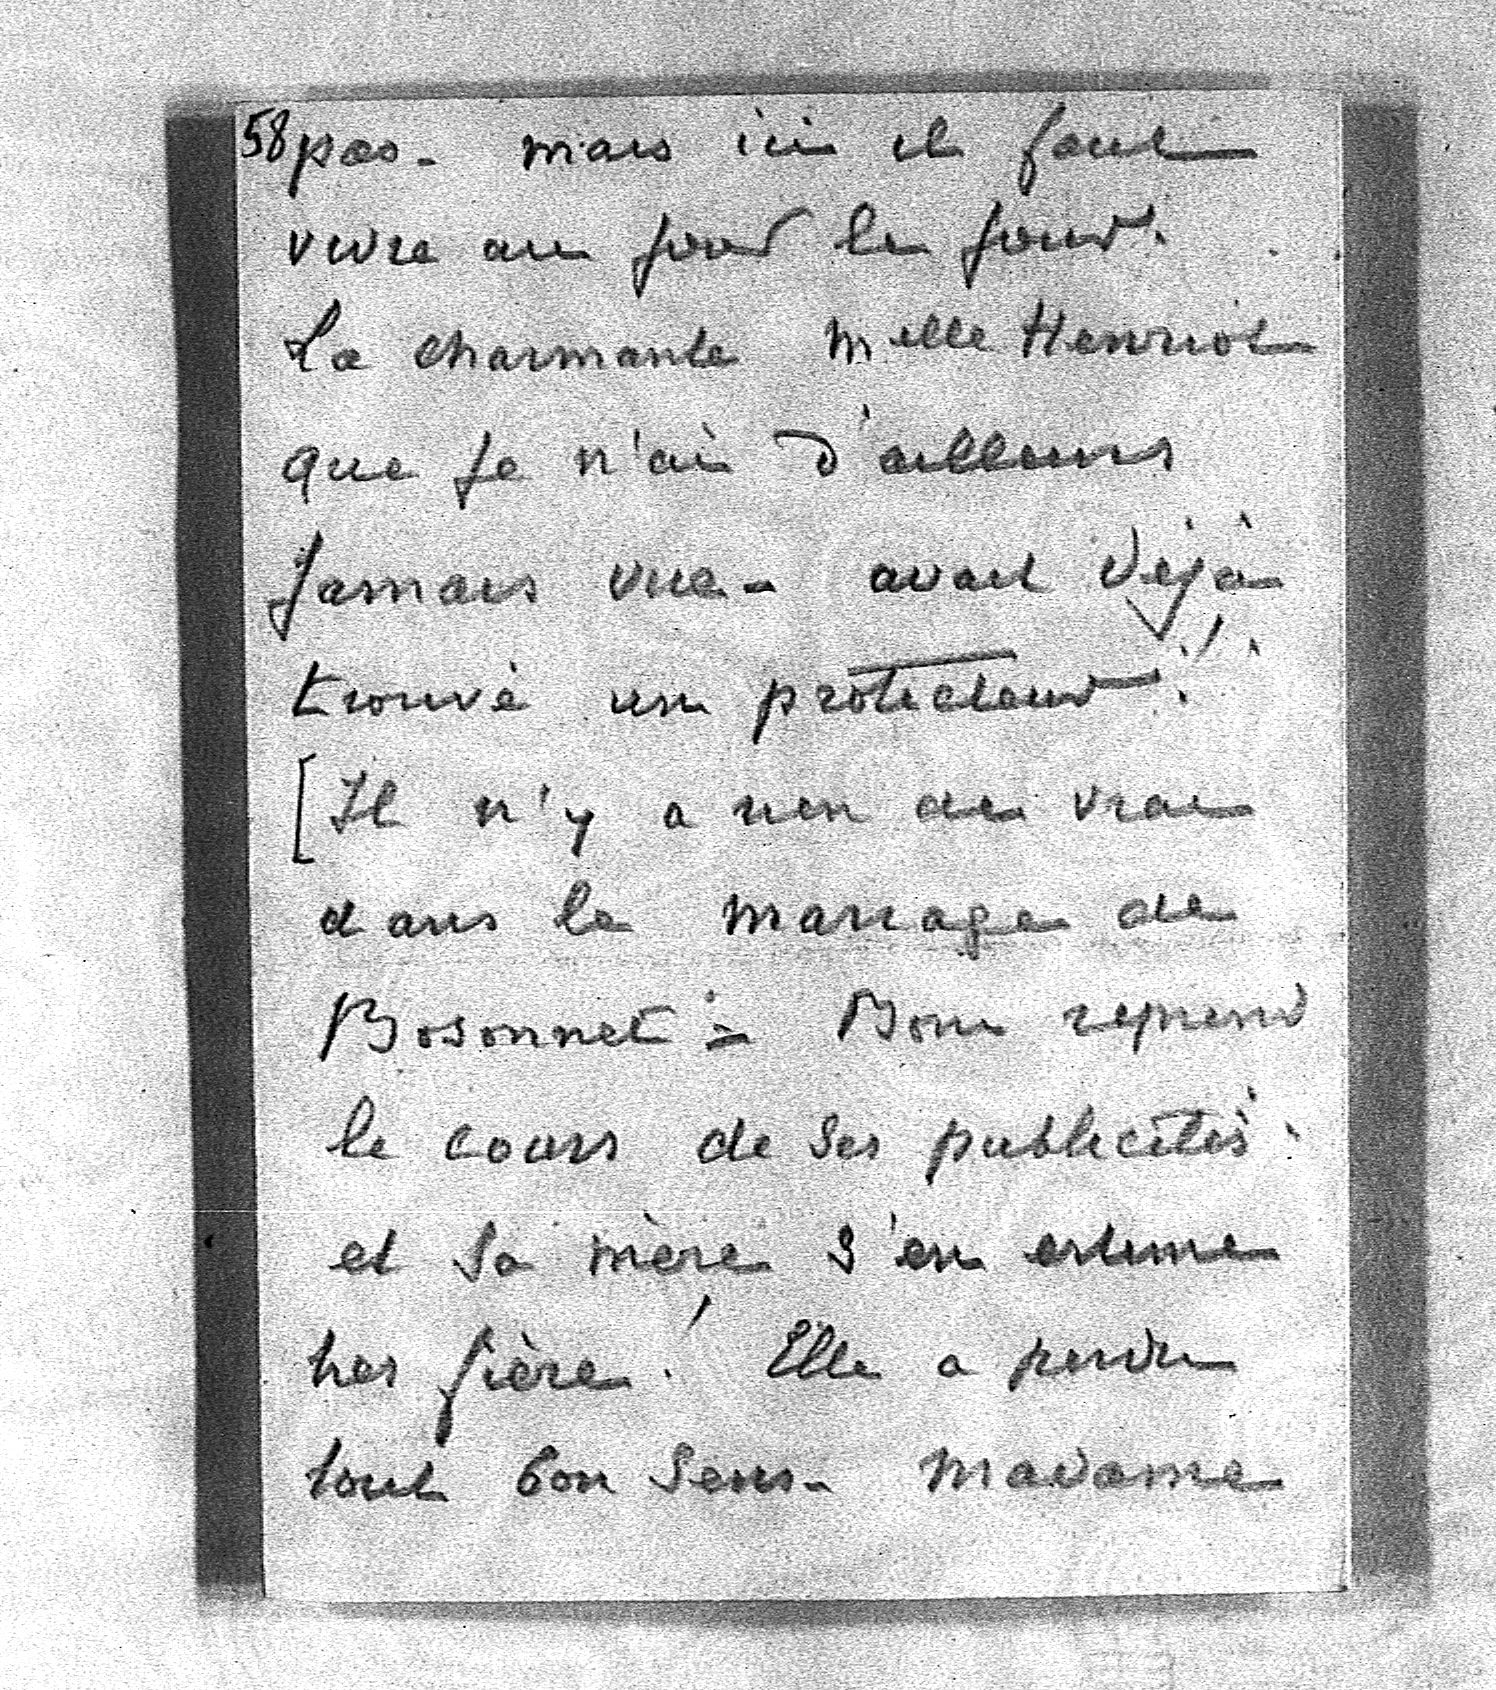 58 pas - mais ici il faut
vivre au jour le jour.
La charmante Melle Henriot
que je n'ai d'ailleurs
jamais vue - avait déjà
trouvé un protecteur !!
[Il n'y a rien de vrai
dans le mariage de
Bosonnet - reprend
le cours de ses publicités.
et sa mère s'en estime
très fière ! Elle a perdu
tout bon sens - Madame